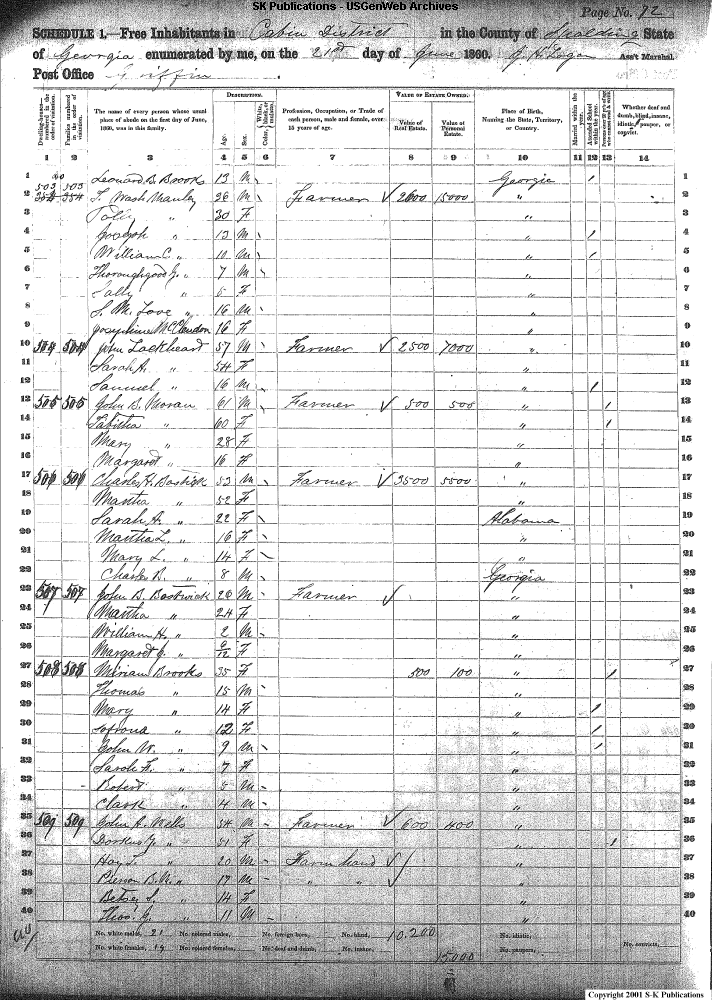 SK Publications - USGenWeb Archives
Page No. 72
SCHEDULE 1.—Free Inhabitants in Cabin District in the County of Spalding State
of Georgia enumerated by me, on the 21st day of June 1860. J. H. Logan Ass't Marshal.
Post Office Griffin
Dwelling-houses numbered in the order of visitation.
Families numbered in the order of visitation.
The name of every person whose usual place of abode on the first day of June, 1860, was in this family.
DESCRIPTION.
Age.
Sex.
Color, White, black, or mulatto.
Profession, Occupation, or Trade of each person, male and female, over 15 years of age.
VALUE OF ESTATE OWNED.
Value of Real Estate.
Value of Personal Estate.
Place of Birth, Naming the State, Territory, or Country.
Married within the year.
Attended School within the year.
Whether deaf and dumb, blind, insane, idiotic, pauper, or convict.
1 2 3 4 5 6 7 8 9 10 11 12 13 14
1 Leonard B. Brooks 13 M Georgia / 1
2 503 503 354 Wash Manley 26 M Farmer ✓ 2600 15000 " 2
3 Polly " 30 F " 3
4 Joseph " 13 M " / 4
5 William C. " 10 M " / 5
6 Thoroughgood G. " 7 M " 6
7 Sally " 5 F " 7
8 S. M. Love " 16 M " 8
9 Josephine McClendon 16 F " 9
10 504 504 John Lockheart 57 M Farmer ✓ 2500 7000 " 10
11 Sarah A. " 54 F " 11
12 Samuel " 16 M " / 12
13 505 505 John B. Moran 61 M Farmer ✓ 500 500 " / 13
14 Tabitha " 60 F " / 14
15 Mary " 28 F " 15
16 Margaret " 16 F " 16
17 506 506 Charles H. Bostick 53 M Farmer ✓ 3500 5500 " 17
18 Martha " 52 F " 18
19 Sarah A. " 22 F Alabama 19
20 Martha L. " 16 F " 20
21 Mary L. " 14 F " 21
22 Charles B. " 8 M Georgia 22
23 507 507 John B. Bostwick 26 M Farmer ✓ " 23
24 Martha " 24 F " 24
25 William H. " 2 M " 25
26 Margaret J. " 9/12 F " 26
27 508 508 Miriam Brooks 35 F 500 100 " / 27
28 Thomas " 15 M " 28
29 Mary " 14 F " / 29
30 Sofrona " 12 F " / 30
31 John W. " 9 M " / 31
32 Sarah F. " 7 F " 32
33 Robert " 5 M " 33
34 Clark " 4 M " 34
35 509 509 John A. Wells 54 M Farmer ✓ 600 400 " 35
36 Dorkus Y. " 51 F " / 36
37 Hoy L. " 20 M Farm hand ✓ " 37
38 Pierson B. M. " 17 M " " ✓ " 38
39 Betsey S. " 14 F " 39
40 Thos. G. " 11 M " 40
No. white males, 21 No. colored males, No. foreign born, No. blind, 10.200 No. idiotic,
No. white females, 19 No. colored females, No. deaf and dumb, No. insane, No. paupers, No. convicts,
Copyright 2001 S-K Publications